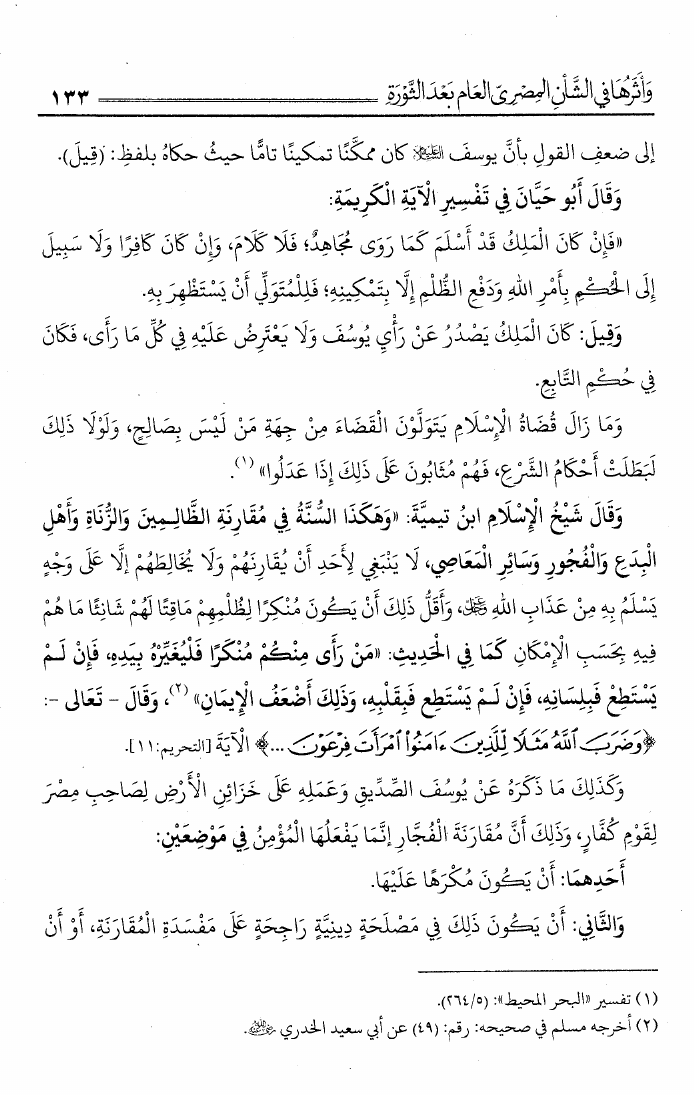 وَأَثَرُهَا فِي الشَّأْنِ المِصْرِيِّ العَامِ بَعْدَ الثَّوْرَةِ ١٣٣
إلى ضعفِ القولِ بأنَّ يوسفَ عليه السلام كان ممكَّنًا تمكينًا تامًّا حيثُ حكاهُ بلفظِ: (قِيلَ).
وَقَالَ أَبُو حَيَّانَ فِي تَفْسِيرِ الْآيَةِ الْكَرِيمَةِ:
«فَإِنْ كَانَ الْمَلِكُ قَدْ أَسْلَمَ كَمَا رَوَى مُجَاهِدٌ؛ فَلَا كَلَامَ، وَإِنْ كَانَ كَافِرًا وَلَا سَبِيلَ
إِلَى الْحُكْمِ بِأَمْرِ اللهِ وَدَفْعِ الظُّلْمِ إِلَّا بِتَمْكِينِهِ؛ فَلِلْمُتَوَلِّي أَنْ يَسْتَظْهِرَ بِهِ.
وَقِيلَ: كَانَ الْمَلِكُ يَصْدُرُ عَنْ رَأْيِ يُوسُفَ وَلَا يَعْتَرِضُ عَلَيْهِ فِي كُلِّ مَا رَأَى، فَكَانَ
فِي حُكْمِ التَّابِعِ.
وَمَا زَالَ قُضَاةُ الْإِسْلَامِ يَتَوَلَّوْنَ الْقَضَاءَ مِنْ جِهَةِ مَنْ لَيْسَ بِصَالِحٍ، وَلَوْلَا ذَلِكَ
لَبَطَلَتْ أَحْكَامُ الشَّرْعِ، فَهُمْ مُثَابُونَ عَلَى ذَلِكَ إِذَا عَدَلُوا» (١).
وَقَالَ شَيْخُ الْإِسْلَامِ ابنُ تيميَّةَ: «وَهَكَذَا السُّنَّةُ فِي مُقَارِنَةِ الظَّالِمِينَ وَالزُّنَاةِ وَأَهْلِ
الْبِدَعِ وَالْفُجُورِ وَسَائِرِ الْمَعَاصِي، لَا يَنْبَغِي لِأَحَدٍ أَنْ يُقَارِنَهُمْ وَلَا يُخَالِطَهُمْ إِلَّا عَلَى وَجْهٍ
يَسْلَمُ بِهِ مِنْ عَذَابِ اللهِ عز وجل، وَأَقَلُّ ذَلِكَ أَنْ يَكُونَ مُنْكِرًا لِظُلْمِهِمْ مَاقِتًا لَهُمْ شَانِئًا مَا هُمْ
فِيهِ بِحَسَبِ الْإِمْكَانِ كَمَا فِي الْحَدِيثِ: «مَنْ رَأَى مِنْكُمْ مُنْكَرًا فَلْيُغَيِّرْهُ بِيَدِهِ، فَإِنْ لَمْ
يَسْتَطِعْ فَبِلِسَانِهِ، فَإِنْ لَمْ يَسْتَطِعْ فَبِقَلْبِهِ، وَذَلِكَ أَضْعَفُ الْإِيمَانِ» (٢)، وَقَالَ - تَعَالَى -:
﴿وَضَرَبَ ٱللَّهُ مَثَلًا لِّلَّذِينَ ءَامَنُوا۟ ٱمْرَأَتَ فِرْعَوْنَ ...﴾ الْآيَةَ [التحريم: ١١].
وَكَذَلِكَ مَا ذَكَرَهُ عَنْ يُوسُفَ الصِّدِّيقِ وَعَمَلِهِ عَلَى خَزَائِنِ الْأَرْضِ لِصَاحِبِ مِصْرَ
لِقَوْمٍ كُفَّارٍ، وَذَلِكَ أَنَّ مُقَارَنَةَ الْفُجَّارِ إِنَّمَا يَفْعَلُهَا الْمُؤْمِنُ فِي مَوْضِعَيْنِ:
أَحَدِهمَا: أَنْ يَكُونَ مُكْرَهًا عَلَيْهَا.
وَالثَّانِي: أَنْ يَكُونَ ذَلِكَ فِي مَصْلَحَةٍ دِينِيَّةٍ رَاجِحَةٍ عَلَى مَفْسَدَةِ الْمُقَارَنَةِ، أَوْ أَنْ
(١) تفسير «البحر المحيط»: (٢٦٤/٥).
(٢) أخرجه مسلم في صحيحه: رقم: (٤٩) عن أبي سعيد الخدري رضي الله عنه.